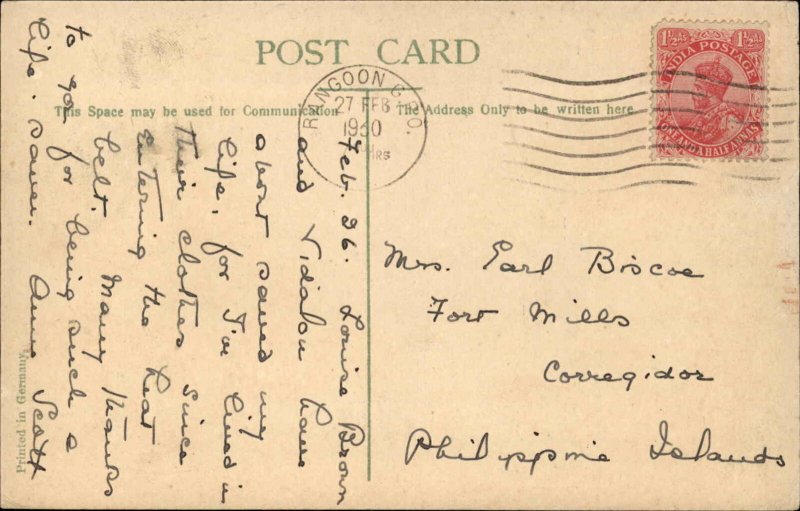 POST CARD
This Space may be used for Communication
The Address Only to be written here
RANGOON G.P.O.
27 FEB
1930
HRS
1½As 1½As
INDIA POSTAGE
ONE AND A HALF ANNAS
Feb. 26. Louise Brown
and Vidalou have
about saved my
life. for I've lived in
their clothes since
entering the heat
belt. Many thanks
to you for being such a
life. saver. Anne Scott
Mrs. Earl Biscoe
Fort Mills
Corregidor
Philippine Islands
Printed in Germany.